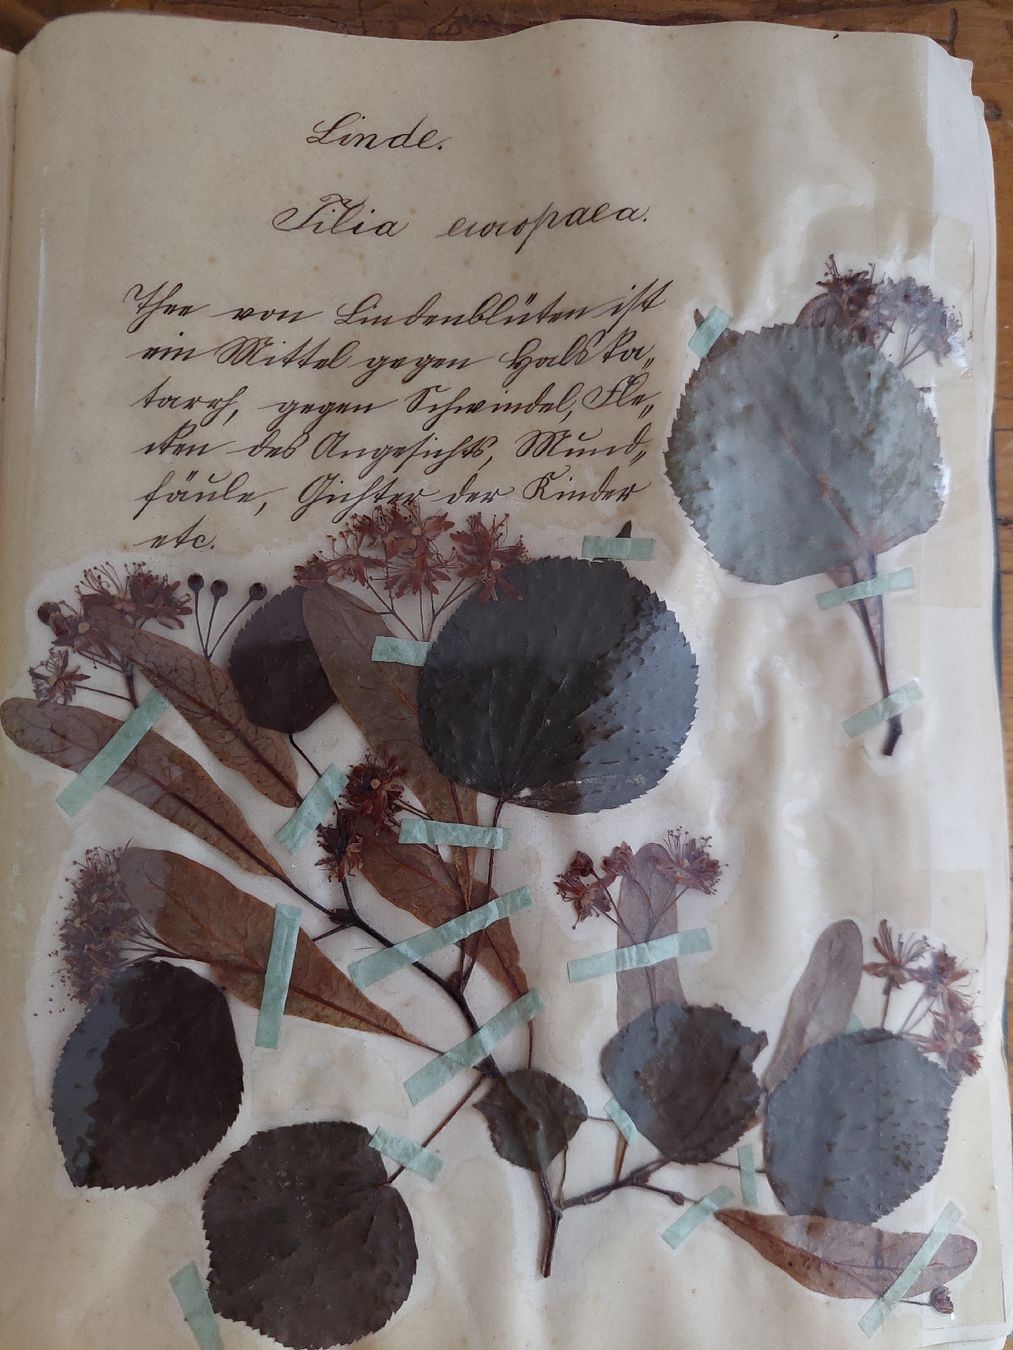 Linde.
Tilia europaea.
Thee von Lindenblüten ist
ein Mittel gegen Halska„
tarrh, gegen Schwindel, Fle„
cken des Angesichts, Mund„
fäule, Gichter der Kinder
etc.